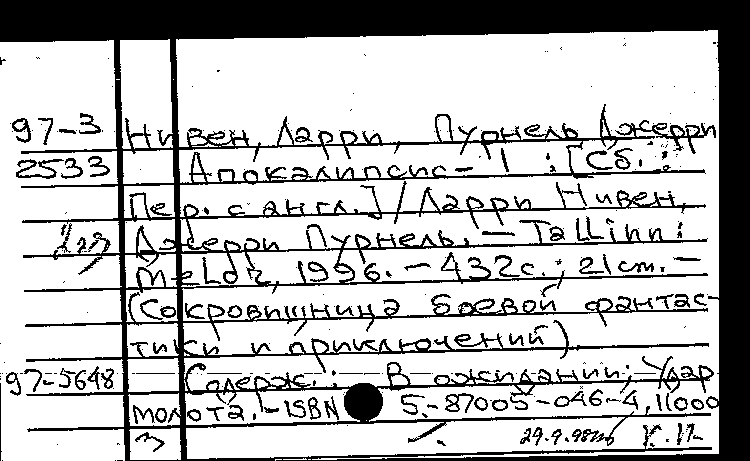 97-3 Нивен, Ларри, Пурнель Джерри
2533 Апокалипсис-1 : [Сб. :
Пер. с англ.] / Ларри Нивен,
2 экз Джерри Пурнель. — Tallinn :
Meldr, 1996. — 432с. ; 21см. —
(Сокровищница боевой фантас-
тики и приключений).
97-5648 Содерж.: В ожидании; Удар
молота. — ISBN 5-87005-046-4, 11000
29.9.98